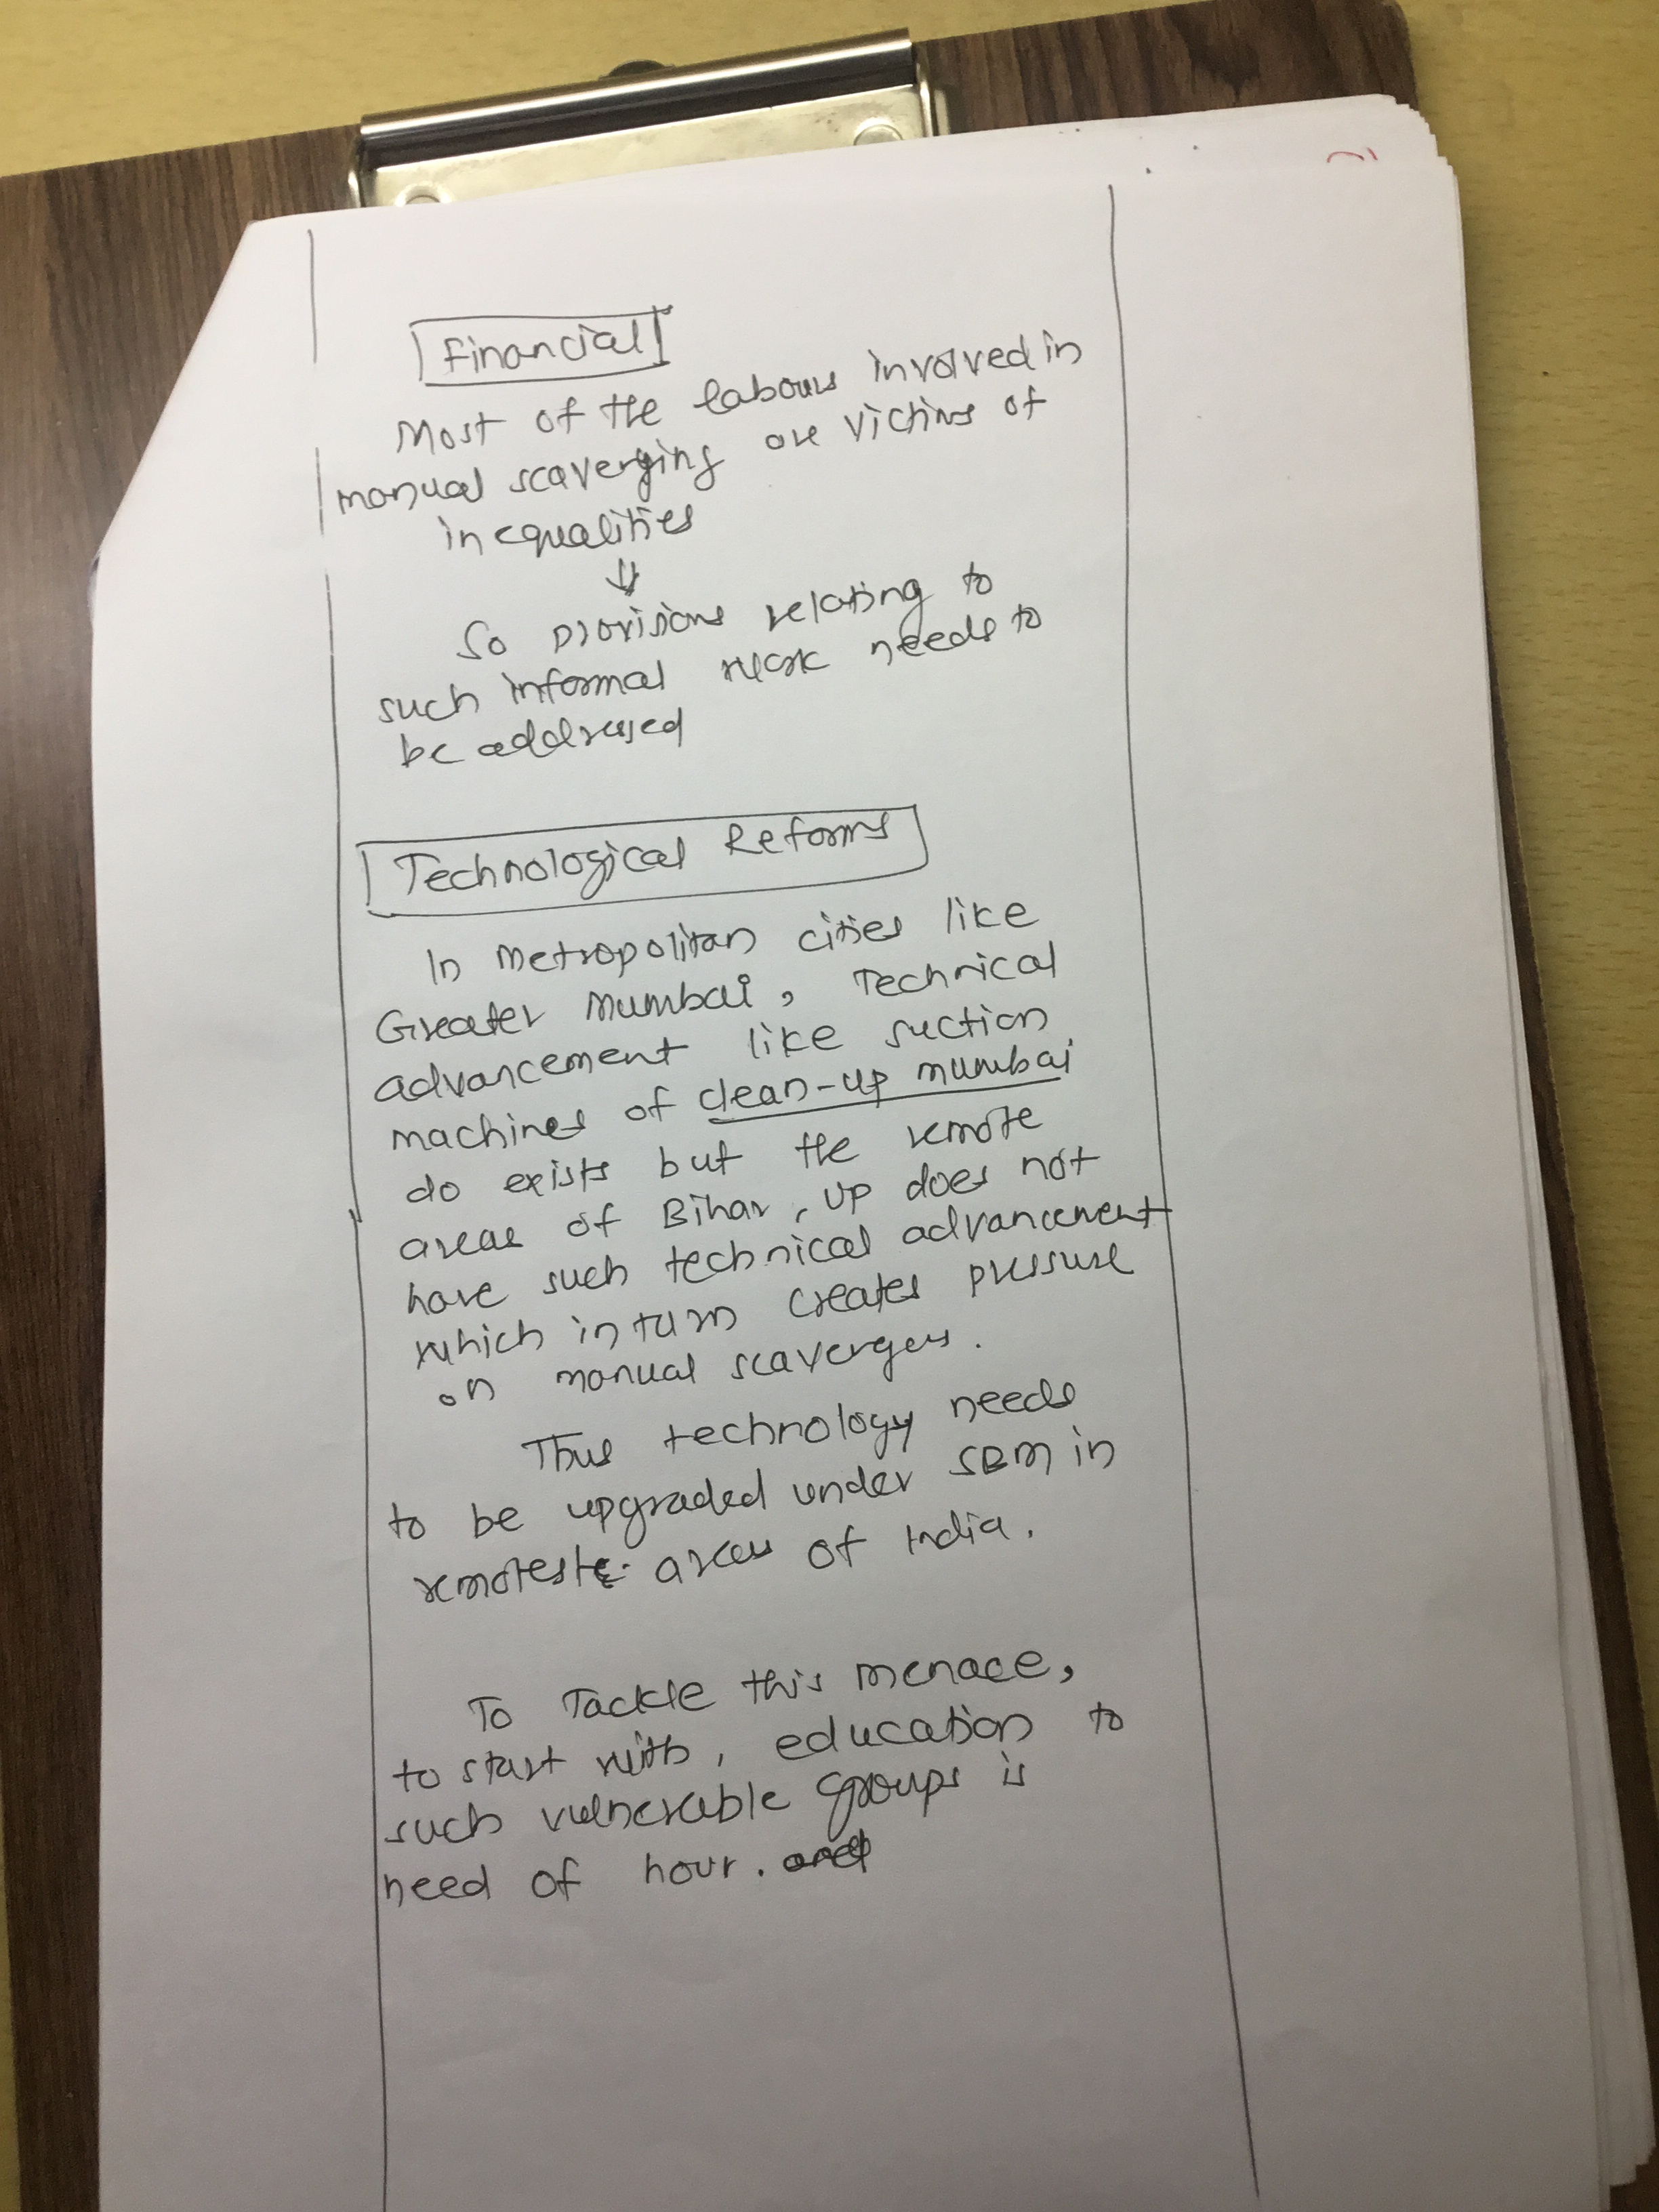 Financial
Most of the labours involved in
manual scavenging are victims of
inequalities
⇓
So provisions relating to
such informal work needs to
be addressed
Technological Reforms
In Metropolitan cities like
Greater Mumbai, Technical
advancement like suction
machines of clean-up mumbai
do exists but the remote
areas of Bihar, UP does not
have such technical advancement
which in turn creates pressure
on manual scavengers.
Thus technology needs
to be upgraded under SBM in
remotest areas of India.
To Tackle this menace,
to start with, education to
such vulnerable groups is
need of hour.